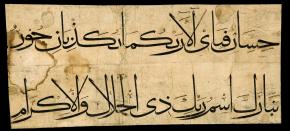 حسان فبای آلاء ربكما تكذبان حور
تبارك اسم ربك ذی الجلال والاكرام